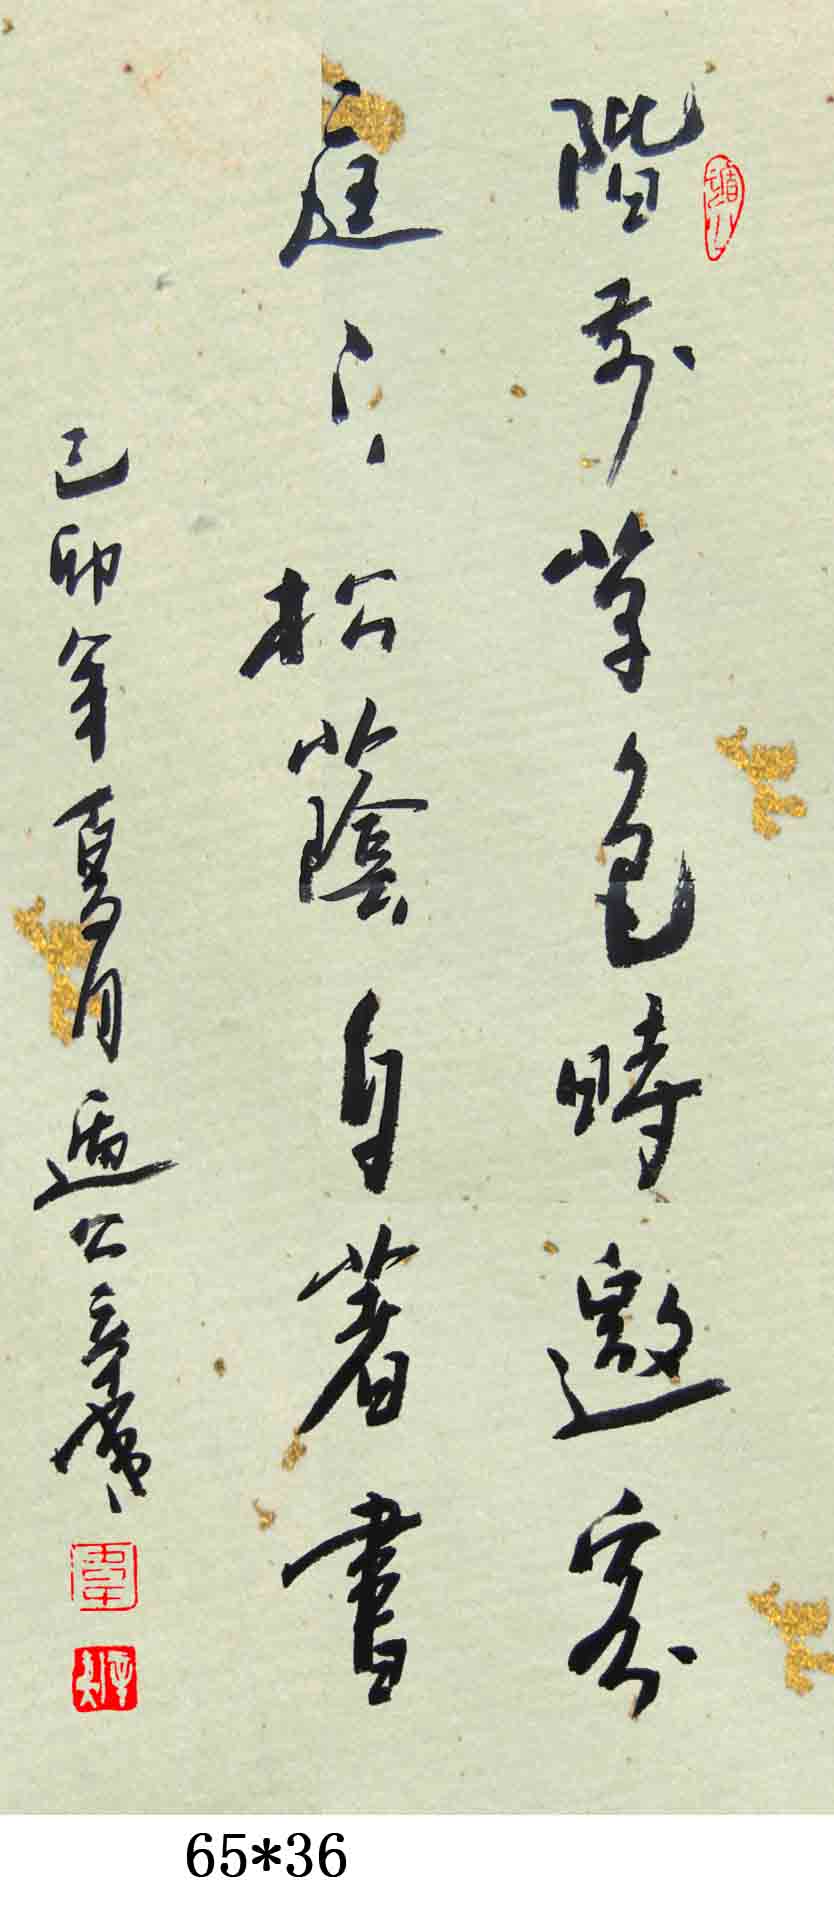 階前草色時邀客
庭下松蔭自著書
己卯年夏月遁公章常
65*36